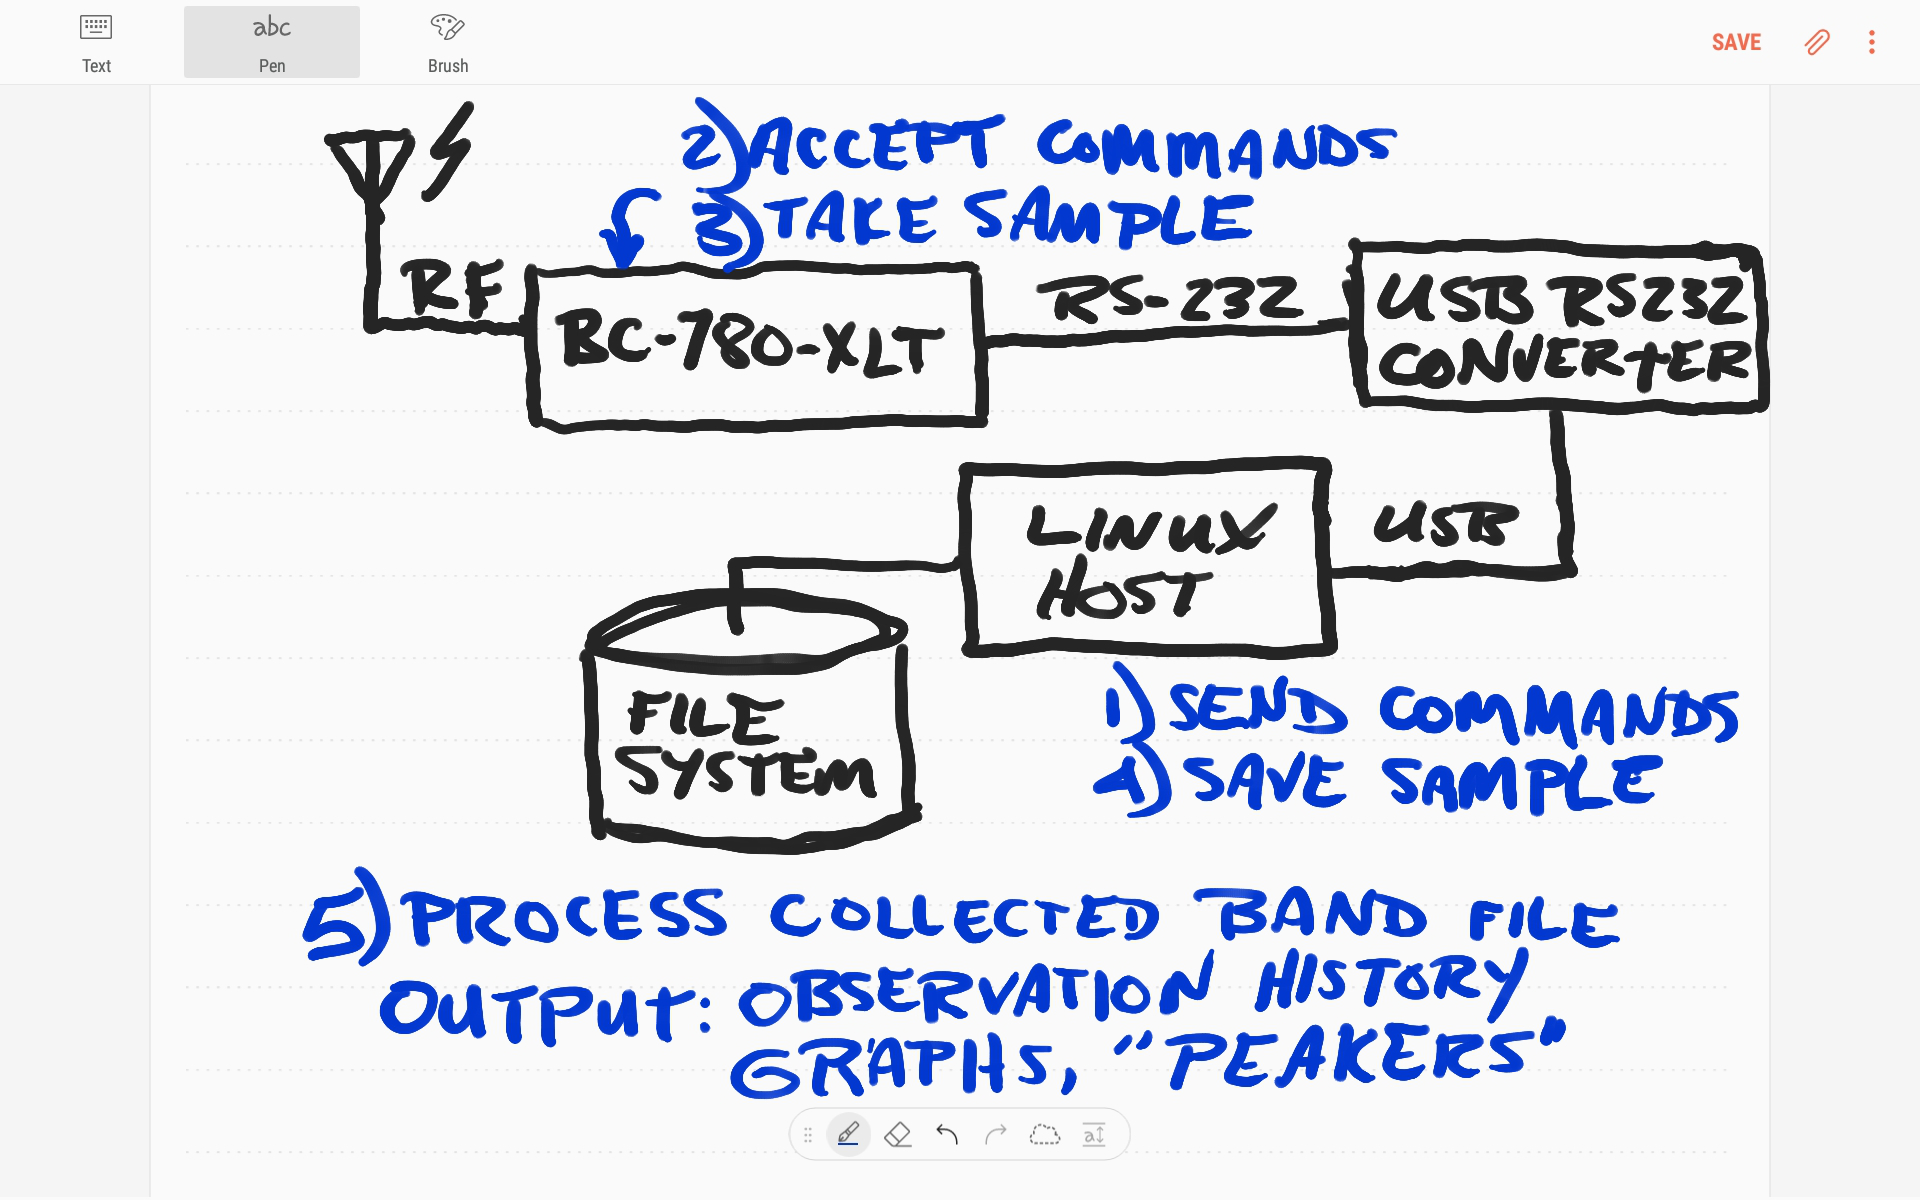 Text
abc
Pen
Brush
SAVE
2) ACCEPT COMMANDS
3) TAKE SAMPLE
RF
BC-780-XLT
RS-232
USB RS232
CONVERTER
LINUX
HOST
USB
FILE
SYSTEM
1) SEND COMMANDS
4) SAVE SAMPLE
5) PROCESS COLLECTED BAND FILE
OUTPUT: OBSERVATION HISTORY
GRAPHS, "PEAKERS"
a